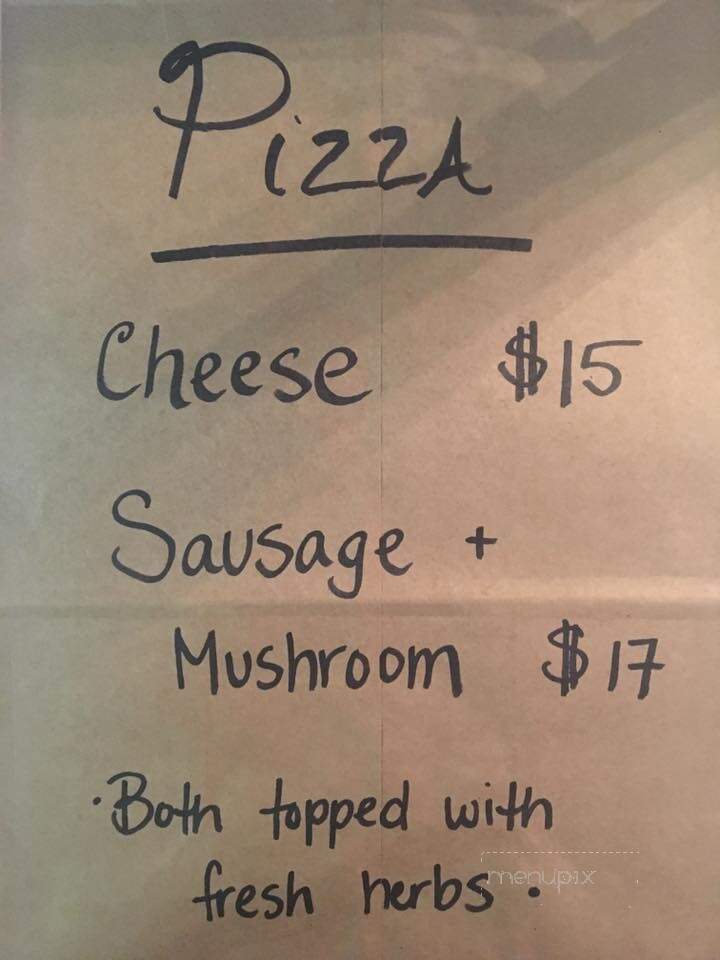 Pizza
Cheese $15
Sausage +
Mushroom $17
·Both topped with
fresh herbs·
menupix